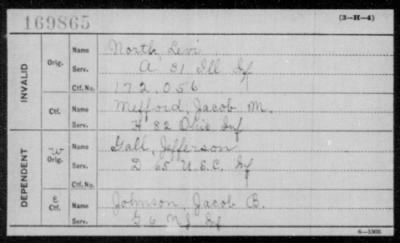 169865 (3-H-4)
INVALID
Orig. Name North, Levi
Serv. A 31 Ill Inf
Ctf. No. 172,056
Ctf. Name Mefford, Jacob M.
Serv. H 82 Ohio Inf
DEPENDENT
W Orig. Name Gall, Jefferson
Serv. D 65 U.S.C. Inf
C Ctf. Name Johnson, Jacob B.
Serv. G 6 N.J. Inf
6-1303